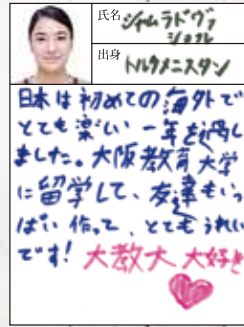 氏名 シャムラドヴァ
ショヘレ
出身 トルクメニスタン
日本は初めての海外で
とても楽しい一年を過し
ました。大阪教育大学
に留学して、友達もいっ
ぱい作って、とてもうれしい
です! 大教大 大好き